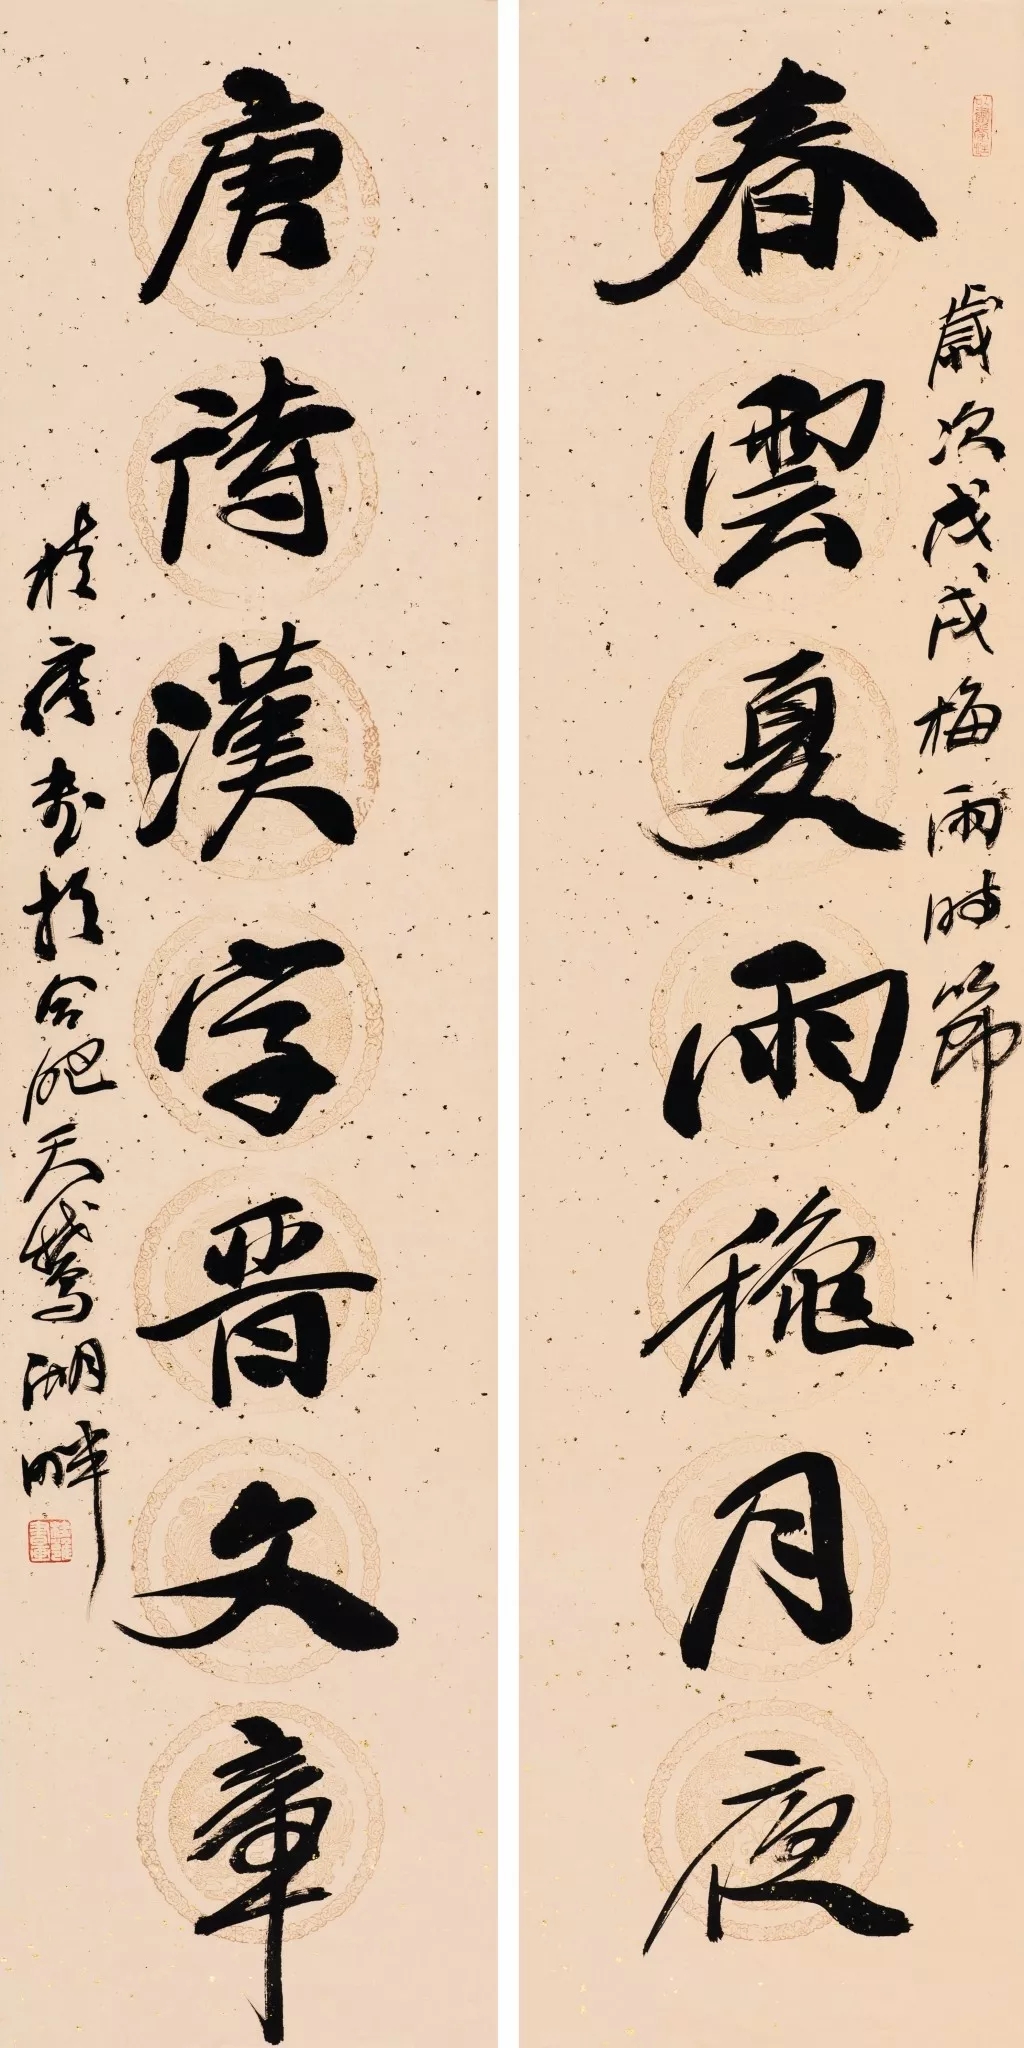 歲次戊戌梅雨時節
春雲夏雨穐月夜
唐詩漢字晋文章
桂雍書於合肥天鵝湖畔